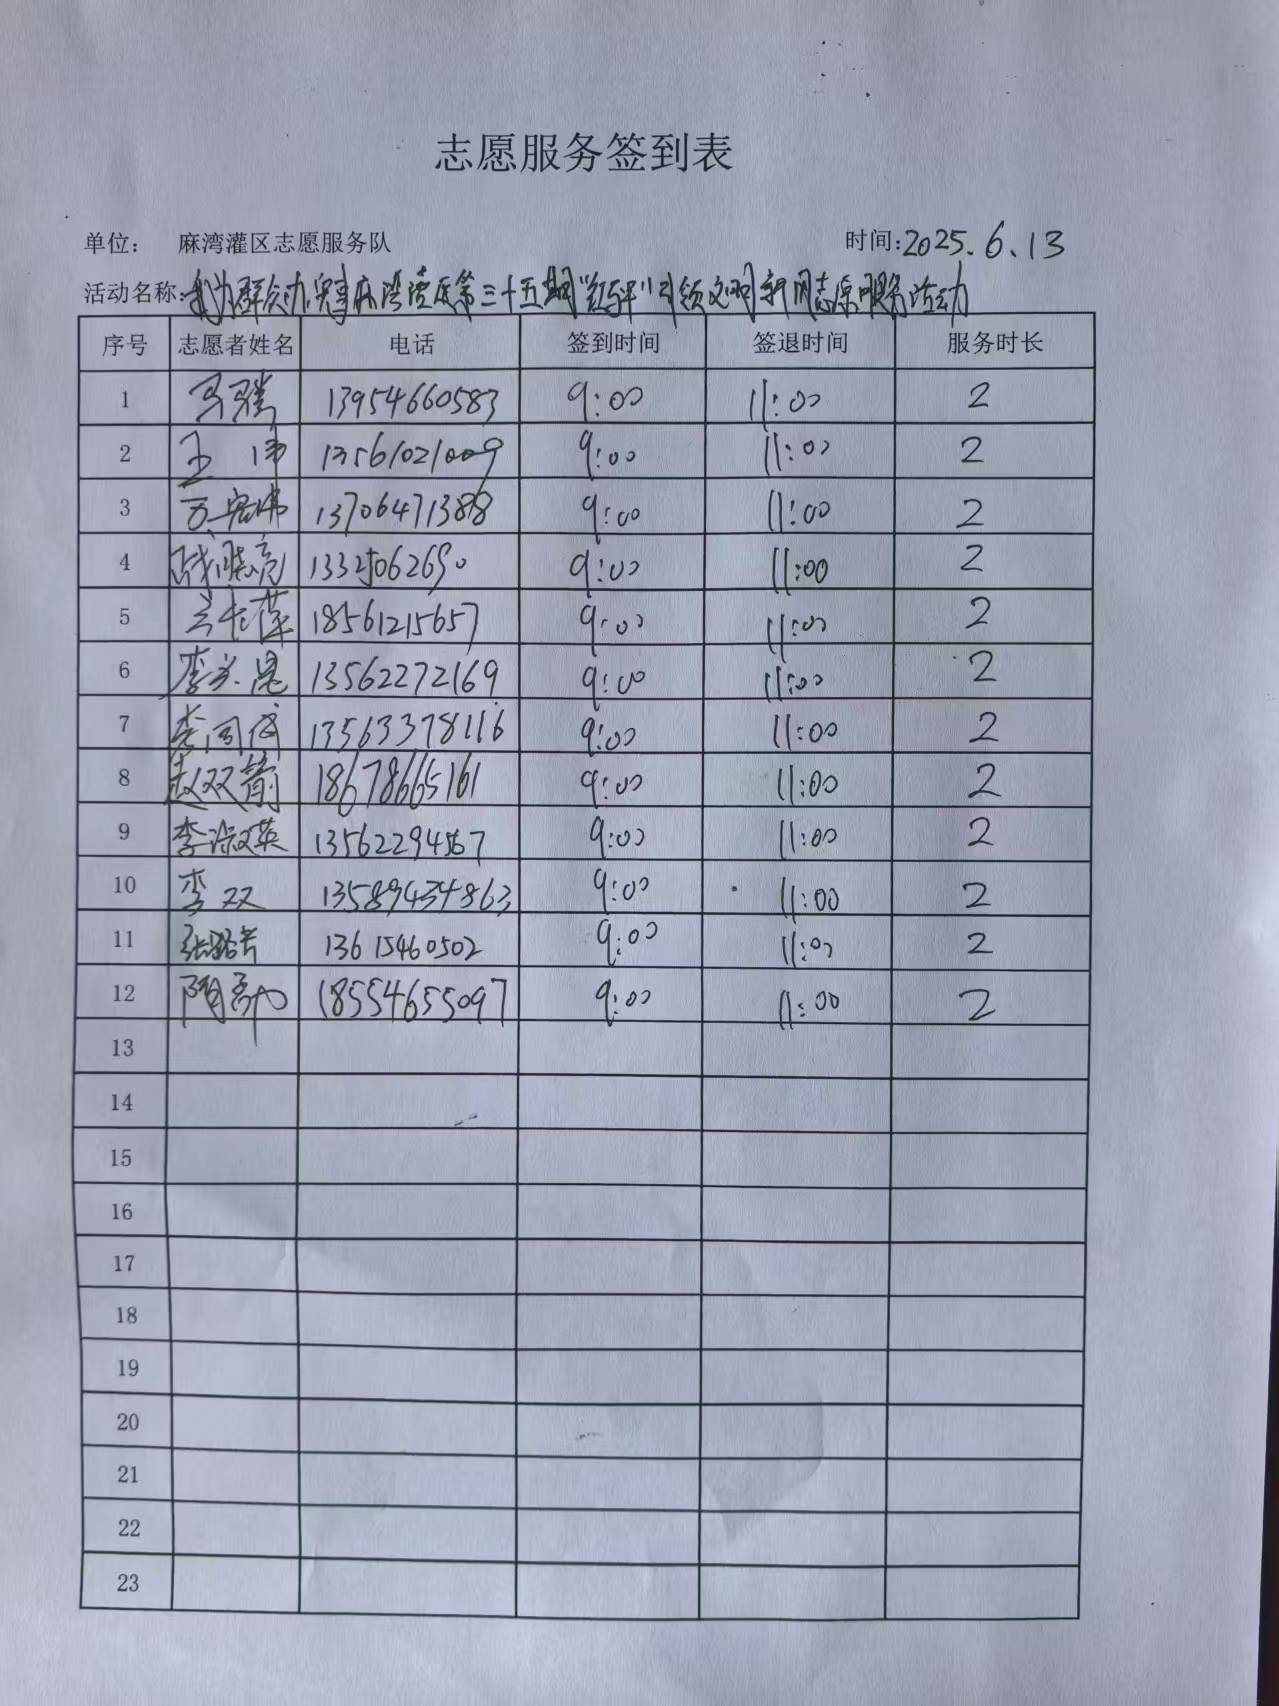 志愿服务签到表
单位： 麻湾灌区志愿服务队 时间:2025.6.13
活动名称:我为群众办实事 第三十五期 引领文明新风志愿服务活动
序号 志愿者姓名 电话 签到时间 签退时间 服务时长
1 马骏 13954660583 9:00 11:00 2
2 王 伟 13561021009 9:00 11:00 2
3 13706471388 9:00 11:00 2
4 陈晓亮 13325062690 9:00 11:00 2
5 18561215657 9:00 11:00 2
6 李 13562272169 9:00 11:00 2
7 13563378116 9:00 11:00 2
8 赵双箭 18678665161 9:00 11:00 2
9 李淑英 13562294567 9:00 11:00 2
10 李双 13589434863 9:00 11:00 2
11 张 13615460502 9:00 11:00 2
12 隋 18554655097 9:00 11:00 2
13
14
15
16
17
18
19
20
21
22
23